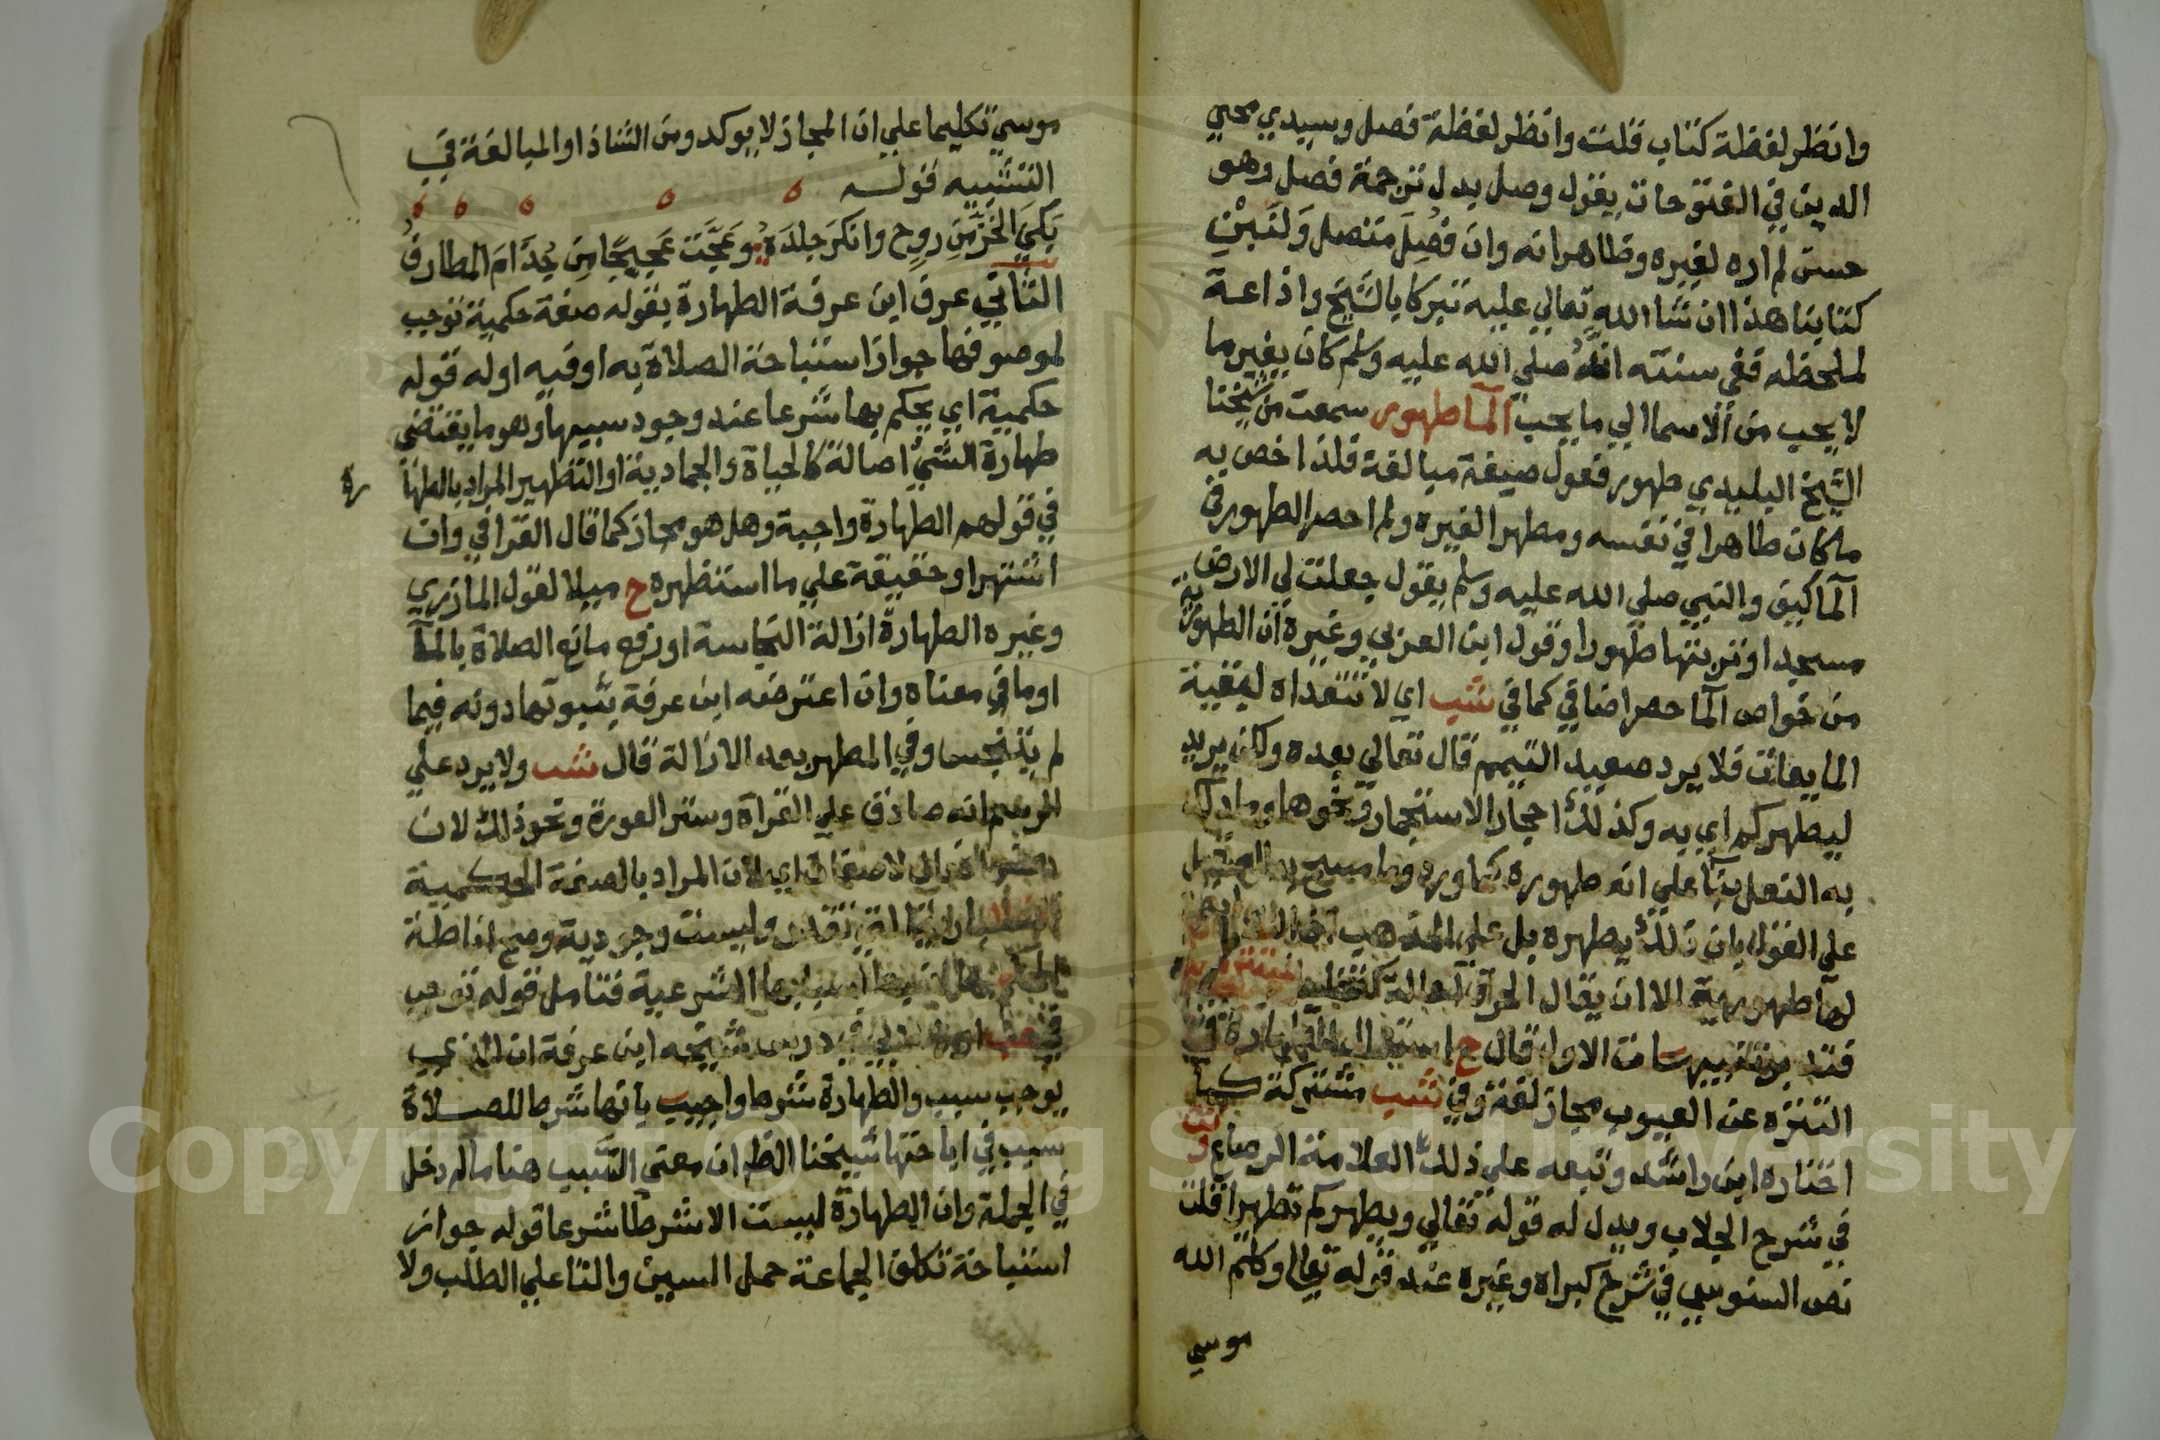 وانظر لفظة كتاب قلت وانظر لفظة فصل وسيدي محيي
الدين في الفتوحات يقول وصل بدل ترجمة فصل وهو
حسن لم اره لغيره وظاهرانه وان فُصِلَ متصل وَلنَبْنِ
كتابنا هذا ان شا الله تعالي عليه تبركا بالشيخ واذاعة
لملحظه ففي سنته انه صلي الله عليه وسلم كان يغير ما
لا يحب من الاسما الي ما يحب المآ طهور سمعت من شيخنا
الشيخ البليدي طهور فعول صيغة مبالغة فلذا خص به
ما كان طاهرا في نفسه ومطهرا لغيره ولم احصر الطهور في
المآ كيف والنبي صلي الله عليه وسلم يقول جعلت لي الارض
مسجدا وتربتها طهورا وقول ابن العربي وغيره ان الطهورية
من خواص المآ حصر اضافي كما في شب اي لا تتعداه لبقية
المايعات فلا يرد صعيد التيمم قال تعالي بعده ولكن يريد
ليطهركم اي به وكذلك احجار الاستجمار ونحوها وما دلك
به النعل بنآ علي انه طهوره كما ورد وما مسح به الصقيل
علي القول بان ذلك يطهره بل علي المذهب
لها طهورية الا ان يقال
فتدبر تنبيهات الاول قال ح استعمال الطهارة في
التنزه عن العيوب مجاز لغة وفي شب مشتركة كما
اختاره ابن راشد وتبعه علي ذلك العلامة الرصاع
في شرح الجلاب ويدل له قوله تعالي ويطهركم تطهيرا قلت
نص السنوسي في شرح كبراه وغيره عند قوله تعالي وكلم الله
موسي
موسي تكليما علي ان المجاز لا يوكد ومن الشاذ او المبالغة في
التشبيه قوله
بَكَي الخَزُّ مِن رَوحٍ وانكَرَ جلدَهُ وعَجَّت عَجِيجًا مِن جُذَامَ المطارفُ
الثاني عرف ابن عرفة الطهارة بقوله صفة حكمية توجب
لموصوفها جواز استباحة الصلاة به او فيه اوله قوله
حكمية اي يحكم بها شرعا عند وجود سببها وهو ما يقتضي
طهارة الشي اصالة كالحياة والجمادية او التطهير المراد بالطهارة
في قولهم الطهارة واجبة وهل هو مجاز كما قال القرافي وان
اشتهر او حقيقة علي ما استظهره ح ميلا لقول المازري
وغيره الطهارة ازالة النجاسة او رفع مانع الصلاة بالمآ
او ما في معناه وان اعترضه ابن عرفة بثبوتها دونه فيما
لم يتنجس وفي المطهر بعد الازالة قال شب ولا يرد علي
الرسم انه صادق علي القرآة وستر العورة ونحو ذلك لان
لا صفات اي لان المراد بالصفة الحكمية
وليست وجودية وصح اناطة
الشرعية فتامل قوله توجب
في درس شيخه ابن عرفة ان الذي
يوجب سبب والطهارة شرط واجيب بانها شرط للصلاة
سبب في اباحتها شيخنا الظ ان معني التسبب هنا ماله دخل
في الجملة وان الطهارة ليست الا شرطا شرعا قوله جواز
استباحة تكلف الجماعة حمل السين والتا علي الطلب ولا